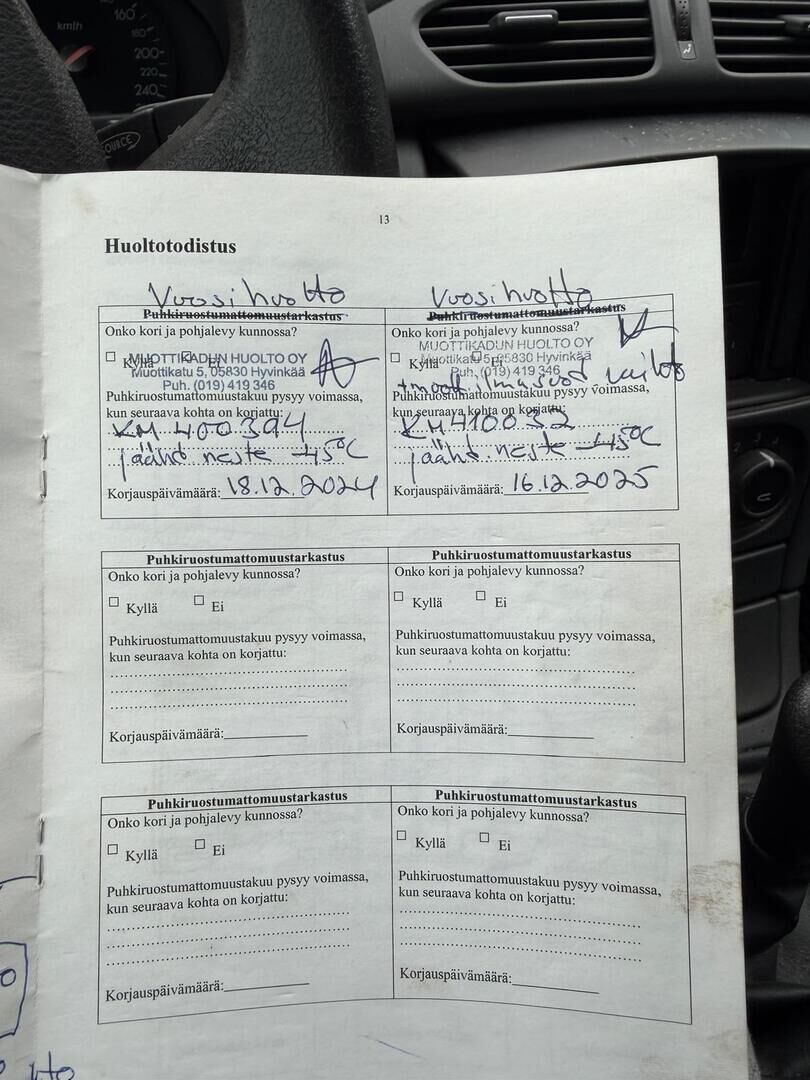 km/h
160
180
200
220
240
SOURCE
13
Huoltotodistus
Vuosihuolto
Puhkiruostumattomuustarkastus
Onko kori ja pohjalevy kunnossa?
Kyllä Ei
MUOTTIKADUN HUOLTO OY
Muottikatu 5, 05830 Hyvinkää
Puh. (019) 419 346
Puhkiruostumattomuustakuu pysyy voimassa,
kun seuraava kohta on korjattu:
KM 400394
jäähd neste -45°C
Korjauspäivämäärä: 18.12.2024
Vuosihuolto
Puhkiruostumattomuustarkastus
Onko kori ja pohjalevy kunnossa?
Kyllä Ei
MUOTTIKADUN HUOLTO OY
Muottikatu 5, 05830 Hyvinkää
Puh. (019) 419 346
+moott.ilmasuod vaihto
Puhkiruostumattomuustakuu pysyy voimassa,
kun seuraava kohta on korjattu:
KM 410032
jäähd. neste -45°C
Korjauspäivämäärä: 16.12.2025
Puhkiruostumattomuustarkastus
Onko kori ja pohjalevy kunnossa?
Kyllä Ei
Puhkiruostumattomuustakuu pysyy voimassa,
kun seuraava kohta on korjattu:
Korjauspäivämäärä:
Puhkiruostumattomuustarkastus
Onko kori ja pohjalevy kunnossa?
Kyllä Ei
Puhkiruostumattomuustakuu pysyy voimassa,
kun seuraava kohta on korjattu:
Korjauspäivämäärä:
Puhkiruostumattomuustarkastus
Onko kori ja pohjalevy kunnossa?
Kyllä Ei
Puhkiruostumattomuustakuu pysyy voimassa,
kun seuraava kohta on korjattu:
Korjauspäivämäärä:
Puhkiruostumattomuustarkastus
Onko kori ja pohjalevy kunnossa?
Kyllä Ei
Puhkiruostumattomuustakuu pysyy voimassa,
kun seuraava kohta on korjattu:
Korjauspäivämäärä: